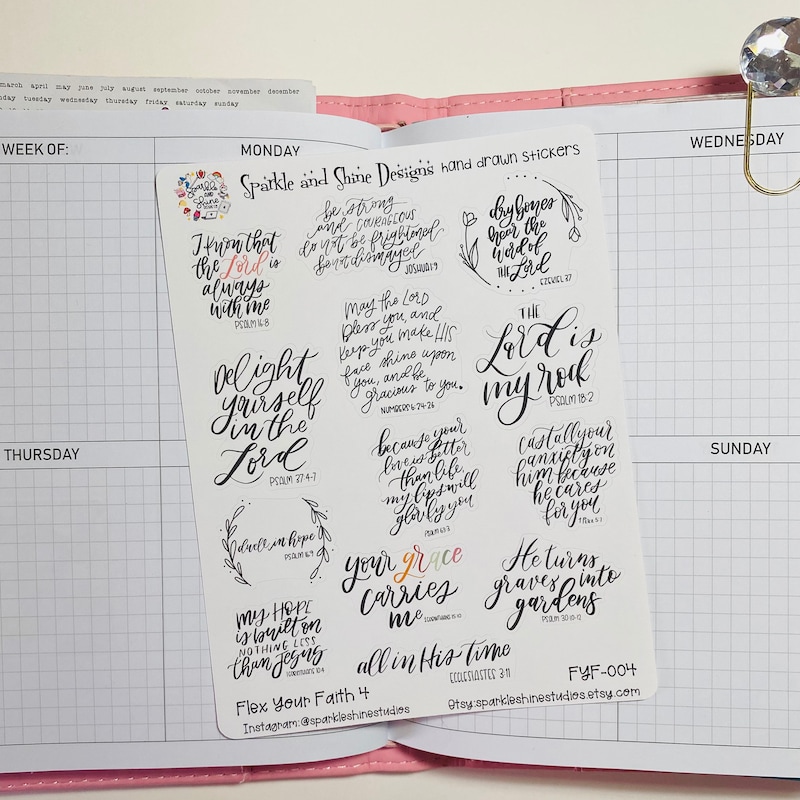 march april may june july august september october november december
day tuesday wednesday thursday friday saturday sunday
WEEK OF:
MONDAY
WEDNESDAY
THURSDAY
SUNDAY
Sparkle and Shine
Sparkle and Shine Designs hand drawn stickers
I know that
the Lord is
always
with me
PSALM 16:8
be strong
and COURAGEOUS
do not be frightened
be not dismayed
JOSHUA 1:9
dry bones
hear the
word of
THE Lord
EZEKIEL 37
May the LORD
bless you, and
keep you make HIS
face shine upon
you, and be
gracious to you.
NUMBERS 6:24-26
THE
Lord is
my rock
PSALM 18:2
Delight
yourself
in the
Lord
PSALM 37:4-7
because your
love is better
than life,
my lips will
glorify you
PSALM 63:3
cast all your
anxiety on
him because
he cares
for you
1 Peter 5:7
dwell in hope
PSALM 16:9
your grace
carries
me
1 CORINTHIANS 15:10
He turns
graves into
gardens
PSALM 30:10-12
my HOPE
is built on
NOTHING LESS
than Jesus
1 CORINTHIANS 10:4
all in His time
ECCLESIASTES 3:11
Flex Your Faith 4
FYF-004
Instagram:@sparkleshinestudios
Etsy:sparkleshinestudios.etsy.com